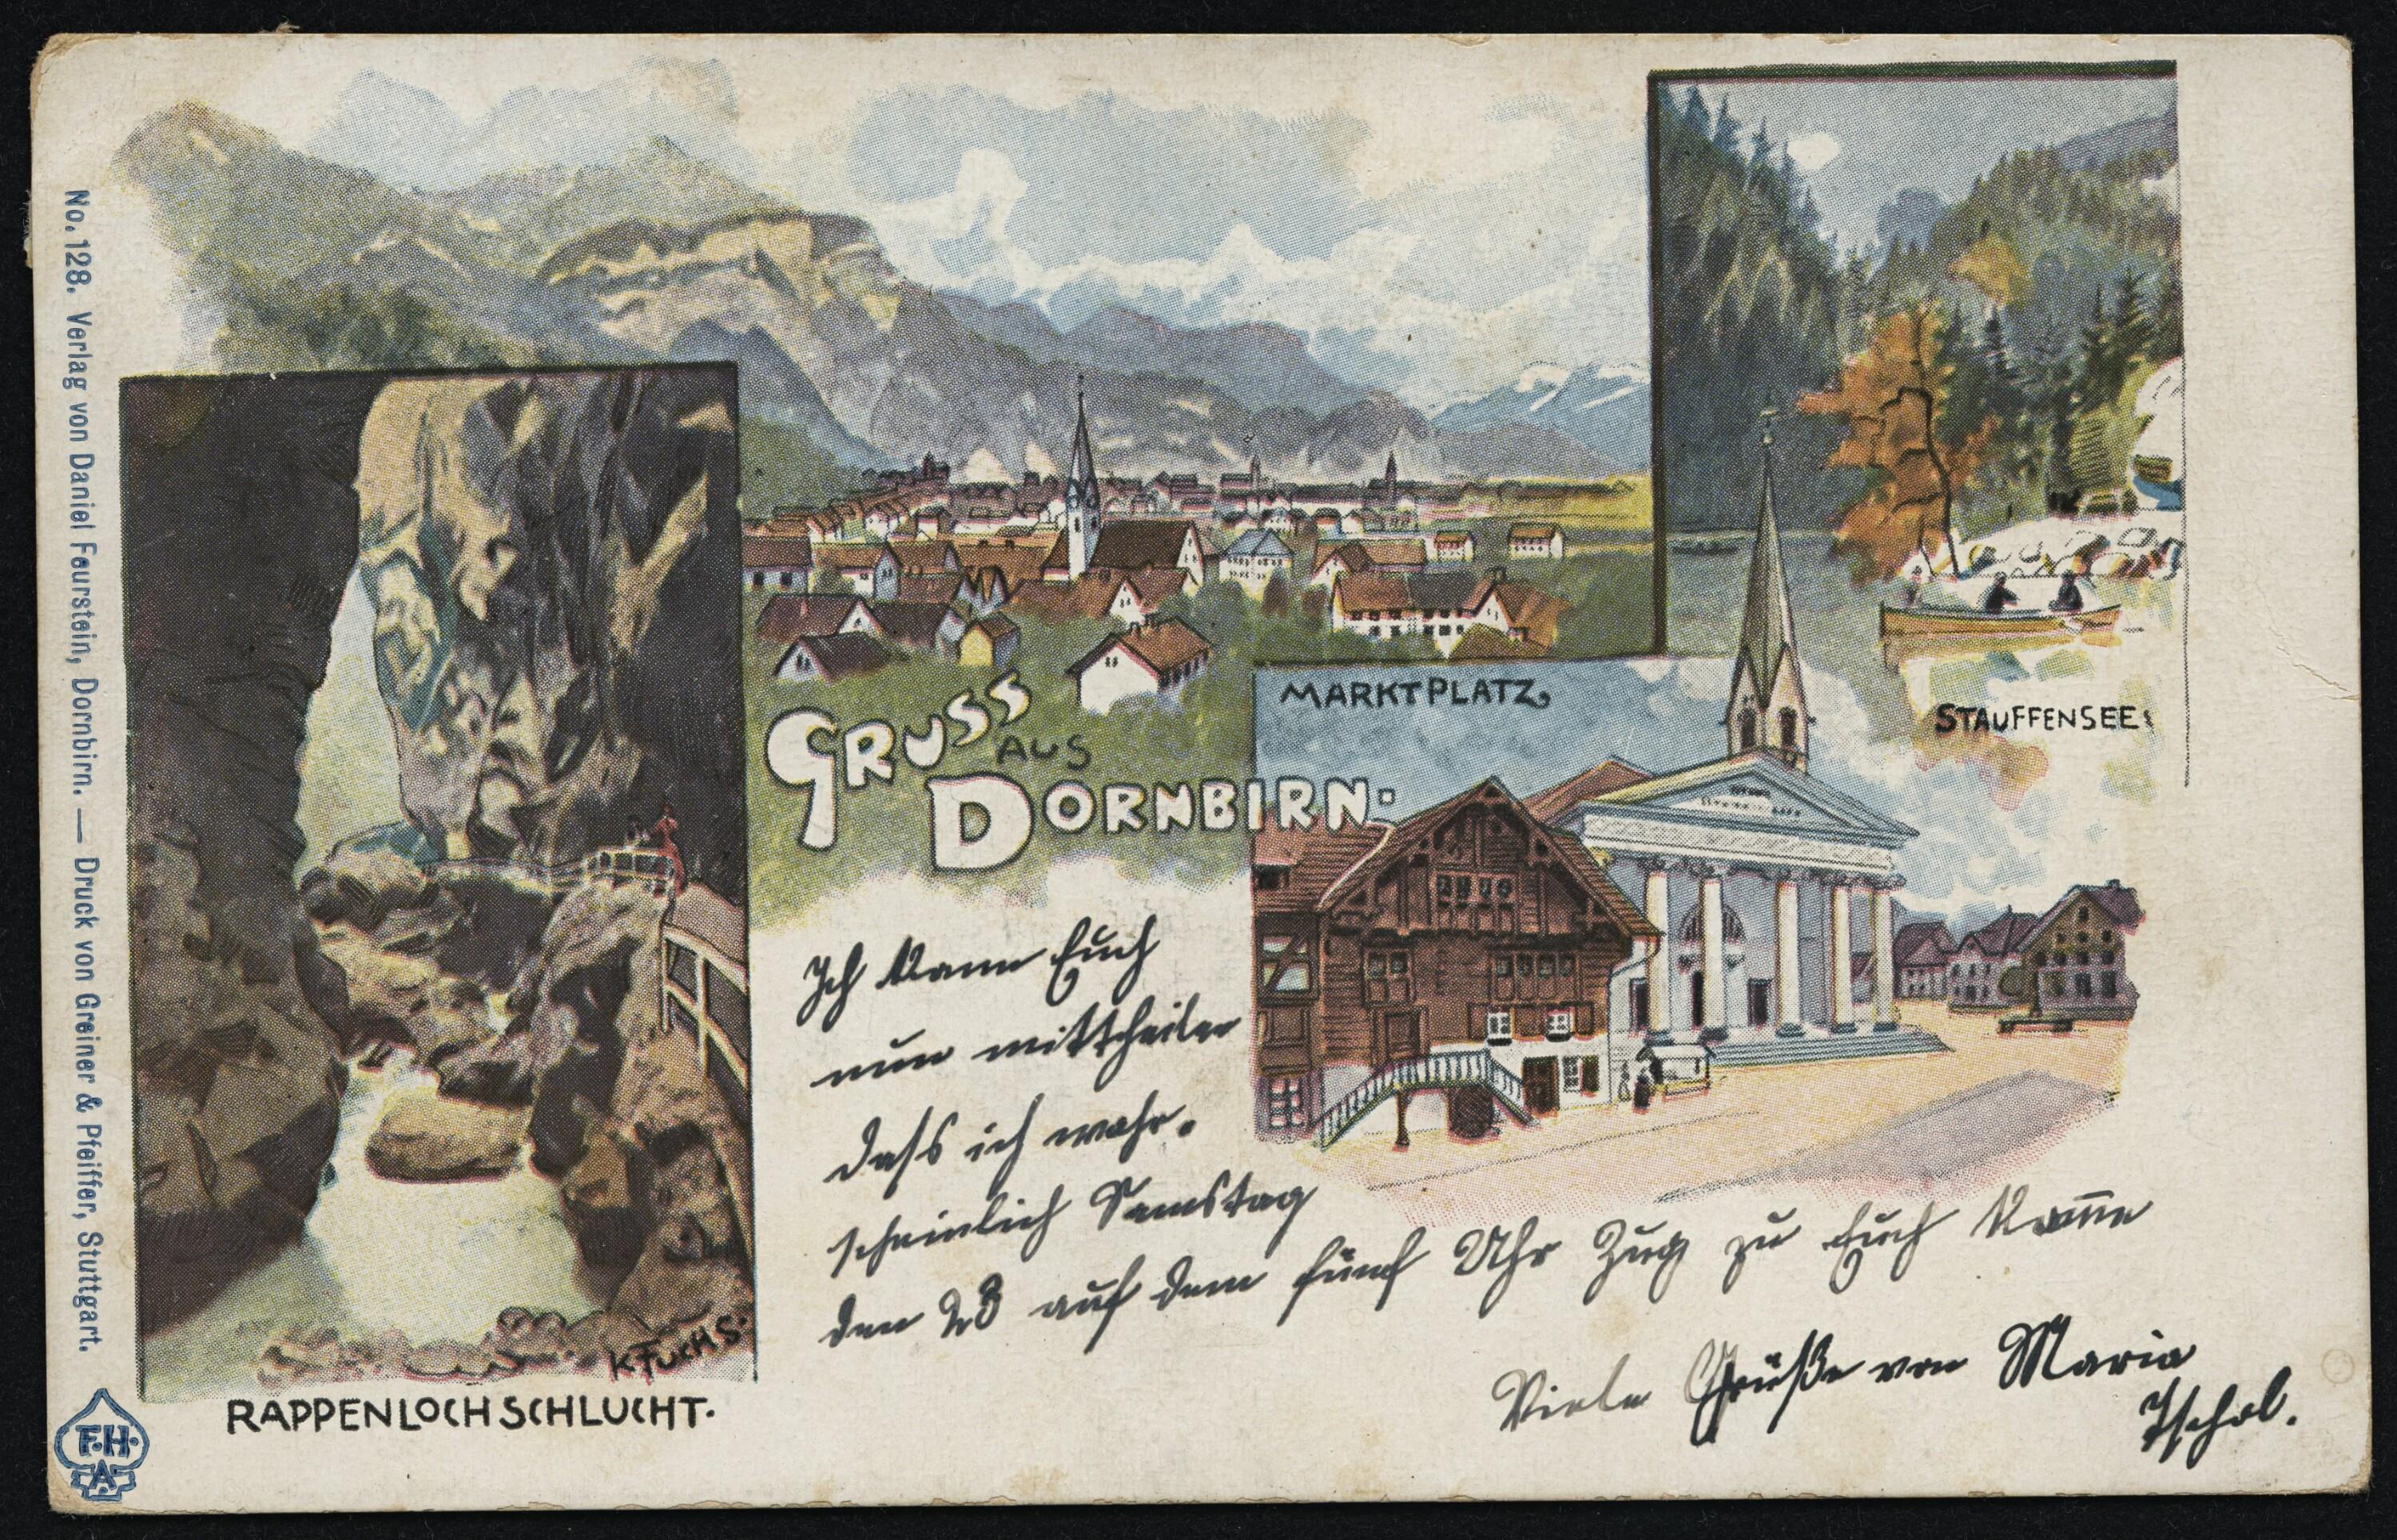 No. 128. Verlag von Daniel Feurstein, Dornbirn. — Druck von Greiner & Pfeiffer, Stuttgart.
F.H.
A.
STAUFFENSEE.
MARKTPLATZ.
GRUSS
AUS
DORNBIRN.
K FUCHS.
RAPPENLOCHSCHLUCHT.
Ich kann Euch
nun mittheilen
dass ich wahr-
scheinlich Samstag
den 28 auf dem fünf Uhr Zug zu Euch kom̅e
Viele Grüße von Maria
Tschol.